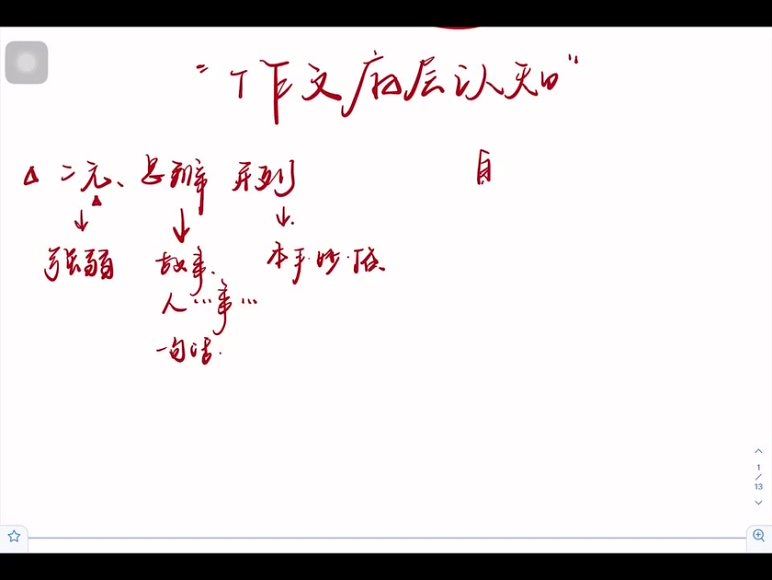 "作文底层认知"
△ 二元、思辨 并列 自
↓ ↓ ↓
强弱 故事、 本手·妙·俗
人…事…
一句话.
1
/
13